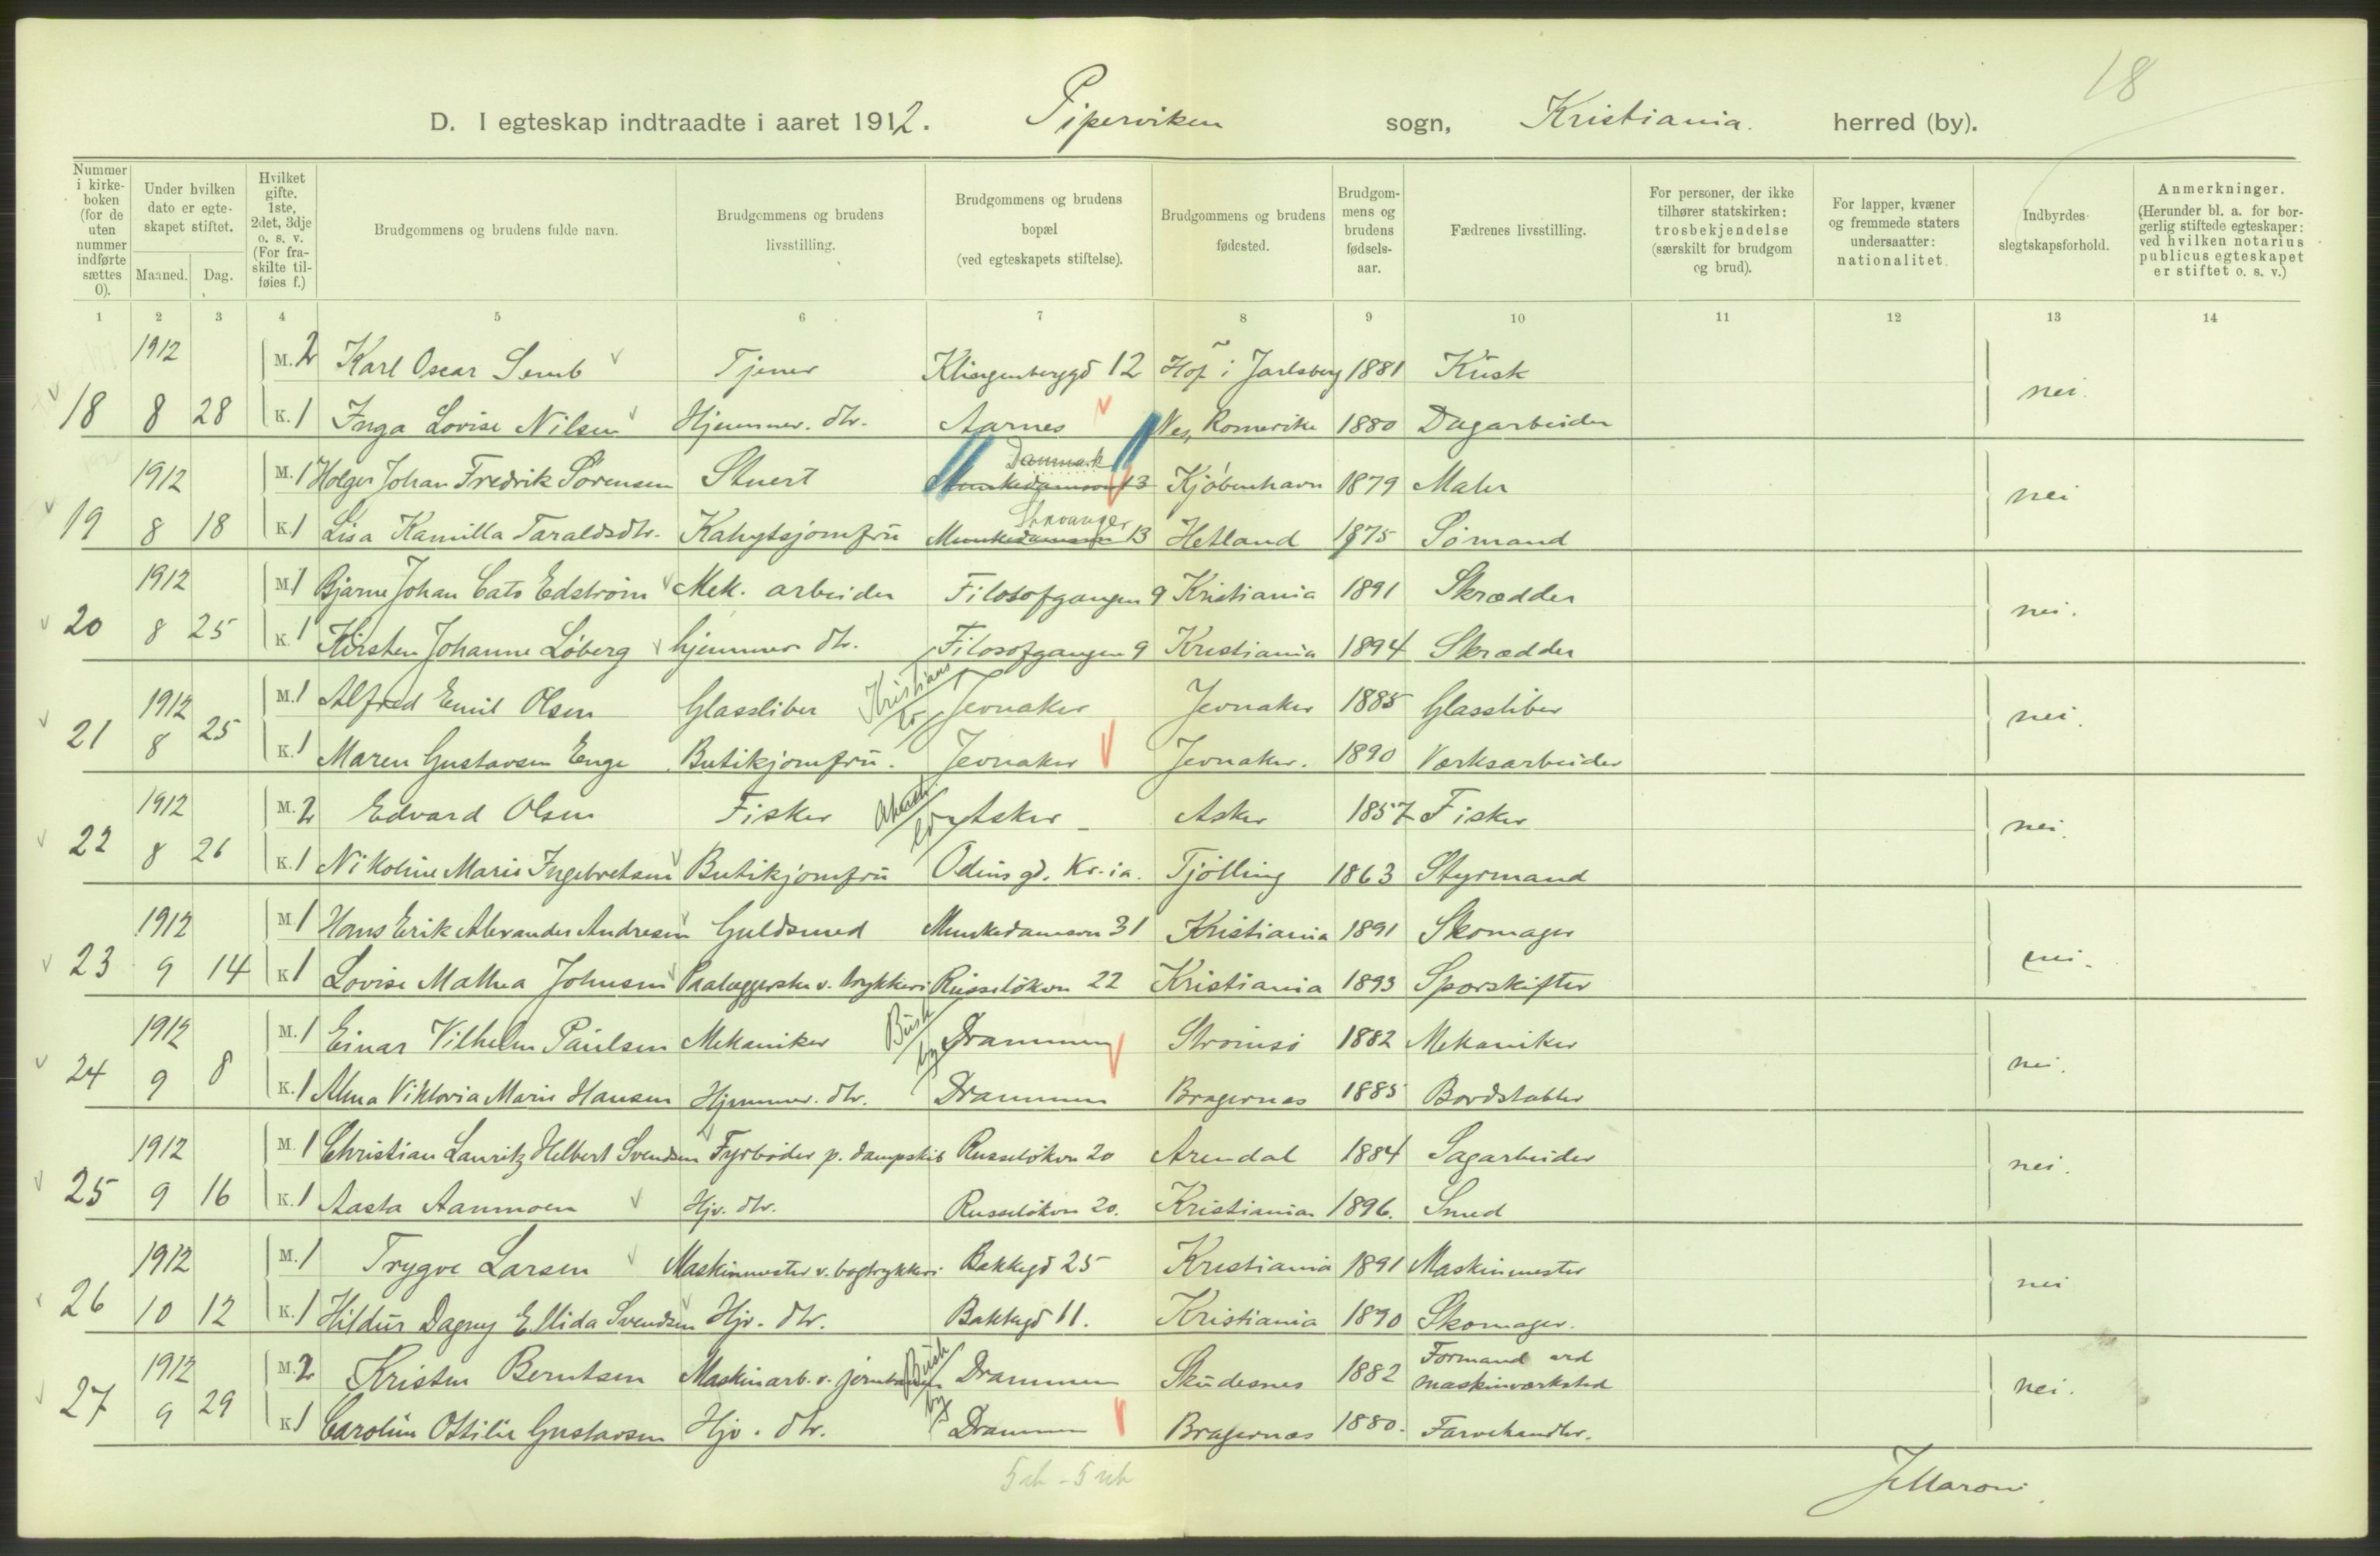 18
D. I egteskap indtraadte i aaret 1912. Piperviken sogn, Kristiania. herred (by).
Nummer i kirke-boken (for de uten nummer indførte sættes 0).
Under hvilken dato er egte-skapet stiftet.
Maaned. Dag.
Hvilket gifte. 1ste, 2det, 3dje o. s. v. (For fra-skilte til-føies f.)
Brudgommens og brudens fulde navn.
Brudgommens og brudens livsstilling.
Brudgommens og brudens bopæl (ved egteskapets stiftelse).
Brudgommens og brudens fødested.
Brudgom-mens og brudens fødsels-aar.
Fædrenes livsstilling.
For personer, der ikke tilhører statskirken: trosbekjendelse (særskilt for brudgom og brud).
For lapper, kvæner og fremmede staters undersaatter: nationalitet.
Indbyrdes slegtskapsforhold.
Anmerkninger. (Herunder bl. a. for bor-gerlig stiftede egteskaper: ved hvilken notarius publicus egteskapet er stiftet o. s. v.)
1 2 3 4 5 6 7 8 9 10 11 12 13 14
1912 M. 2 Karl Oscar Semb Tjener Klingenberggd 12 Hof i Jarlsberg 1881 Kusk
18 8 28 K. 1 Inga Lovise Nilsen Hjemmev. dtr. Aarnes Nes, Romerike 1880 Dagarbeider nei.
Danmark
1912 M. 1 Holger Johan Fredrik Sørensen Stuert Munkedamsvn 13 Kjøbenhavn 1879 Maler
Stavanger
19 8 18 K. 1 Lisa Kamilla Taraldsdtr. Kahytsjomfru Munkedamsvn 13 Hetland 1875 Sømand nei
1912 M. 1 Bjarne Johan Cato Edstrøm Mek. arbeider Filosofgangen 9 Kristiania 1891 Skrædder
20 8 25 K. 1 Kirsten Johanne Løberg hjemmev. dtr. Filosofgangen 9 Kristiania 1894 Skrædder nei.
1912 M. 1 Alfred Emil Olsen Glassliber Kristians Jevnaker Jevnaker 1885 Glassliber
21 8 25 K. 1 Maren Gustavsen Enge Butikjomfru. Jevnaker Jevnaker. 1890 Værksarbeider nei.
1912 M. 2 Edvard Olsen Fisker Asker Asker 1857 Fisker
22 8 26 K. 1 Nikoline Marie Ingebretsen Butikjomfru Odins gd. Kr.ia. Tjølling 1863 Styrmand nei.
1912 M. 1 Hans Erik Alexander Andresen Guldsmed Munkedamsvn 31 Kristiania 1891 Skomager
23 9 14 K. 1 Lovise Mathea Johnsen Paalæggerske v. trykkeri Russeløkvn 22 Kristiania 1893 Sporskifter nei.
1912 M. 1 Einar Vilhelm Paulsen Mekaniker Busk by Drammen Strømsø 1882 Mekaniker
24 9 8 K. 1 Alma Viktoria Marie Hansen Hjemmev. dtr. Drammen Bragernes 1885 Bordstabler nei.
1912 M. 1 Christian Lauritz Helbert Svendsen Fyrbøder p. dampskib Russeløkvn 20 Arendal 1884 Sagarbeider
25 9 16 K. 1 Aasta Aanmoen Hjv. dtr. Russeløkvn 20. Kristiania 1896. Smed nei.
1912 M. 1 Trygve Larsen Maskinmester v. bogtrykkeri Bakkegd 25 Kristiania 1891 Maskinmester
26 10 12 K. 1 Hildur Dagny Ellida Svendsen Hjv. dtr. Bakkegd 11. Kristiania 1890 Skomager. nei
1912 M. 2 Kristen Berntsen Maskinarb. v. jernbanen Busk by Drammen Skudesnes 1882 Formand ved maskinværksted
27 9 29 K. 1 Caroline Ottilie Gustavsen Hjv. dtr. Drammen Bragernes 1880. Farvehandler. nei.